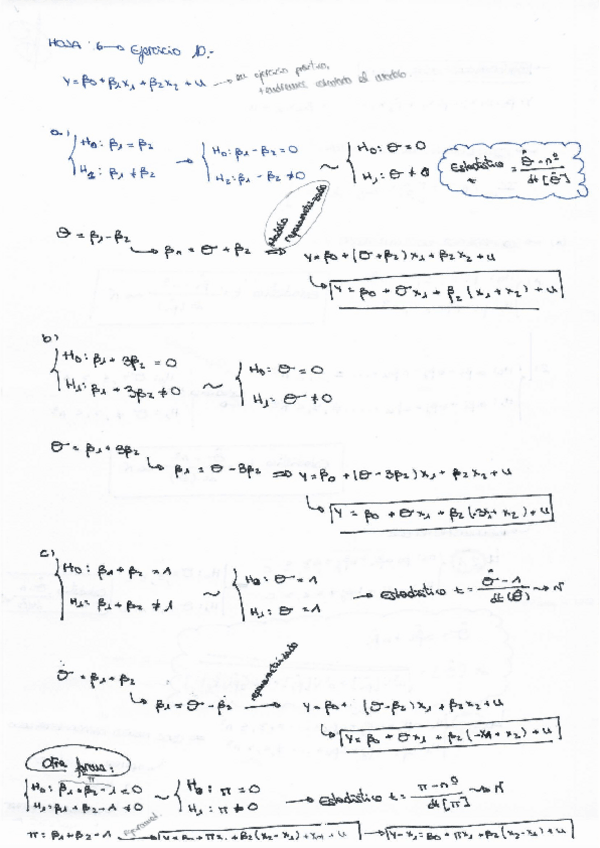 HOJA 6 → Ejercicio 10.-
Y = β0 + β1x1 + β2x2 + u → en ejercicio práctico,
tendremos estimado el modelo.
a) { H0: β1 = β2 → { H0: β1 - β2 = 0 ~ { H0: θ = 0
H1: β1 ≠ β2 H1: β1 - β2 ≠ 0 H1: θ ≠ 0
Estadístico t = θ̂ - nº / dt[θ̂]
θ = β1 - β2
Modelo reparametrizado
↳ β1 = θ + β2 ⇒ Y = β0 + (θ + β2)x1 + β2x2 + u
↳ Y = β0 + θx1 + β2(x1 + x2) + u
b)
{ H0: β1 + 3β2 = 0 ~ { H0: θ = 0
H1: β1 + 3β2 ≠ 0 H1: θ ≠ 0
θ = β1 + 3β2
↳ β1 = θ - 3β2 ⇒ Y = β0 + (θ - 3β2)x1 + β2x2 + u
↳ Y = β0 + θx1 + β2(-3x1 + x2) + u
c)
{ H0: β1 + β2 = 1 ~ { H0: θ = 1 → Estadístico t = θ̂ - 1 / dt(θ̂) ~ N
H1: β1 + β2 ≠ 1 H1: θ = 1
θ = β1 + β2
reparametrizado
↳ β1 = θ - β2 → Y = β0 + (θ - β2)x1 + β2x2 + u
↳ Y = β0 + θx1 + β2(-x1 + x2) + u
Otra forma:
π
{ H0: β1 + β2 - 1 = 0 ~ { H0: π = 0 → Estadístico t = π - nº / dt[π] ~ N
H1: β1 + β2 - 1 ≠ 0 H1: π ≠ 0
π = β1 + β2 - 1 → Y = β0 + πx1 + β2(x2 - x1) + x1 + u → Y - x1 = β0 + πx1 + β2(x2 - x1) + u